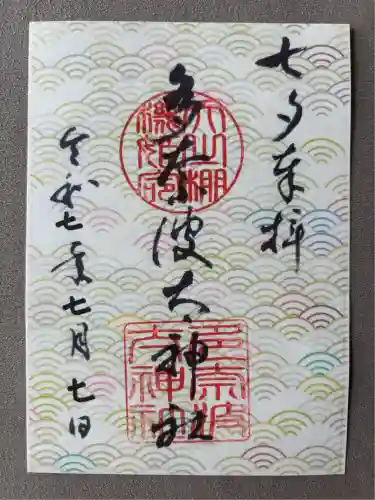 七夕奉拝
多奈波太神社
令和七年七月七日